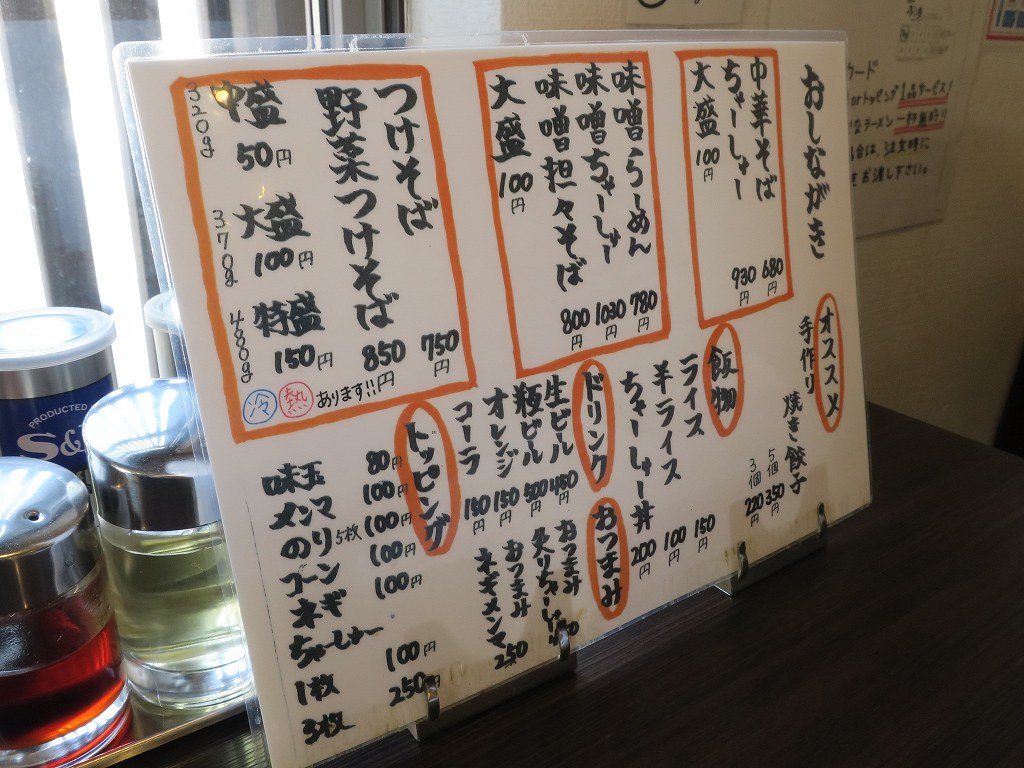 おしながき
中華そば 680円
ちゃーしゅー 930円
大盛 100円
味噌らーめん 780円
味噌ちゃーしゅー 1030円
味噌担々そば 800円
大盛 100円
つけそば 750円
野菜つけそば 850円
中盛 50円
320g
大盛 100円
370g
特盛 150円
480g
冷 熱 あります!!
オススメ
手作り 焼き餃子
5個 350円
3個 220円
飯物
ライス 150円
半ライス 100円
ちゃーしゅー丼 200円
ドリンク
生ビール 450円
瓶ビール 500円
オレンジ 150円
コーラ 150円
おつまみ
おつまみ
炙りちゃーしゅー
おつまみ
ネギメンマ 250
トッピング
味玉 80円
メンマ 100円
のり5枚 100円
コーン 100円
ネギ 100円
ちゃーしゅー
1枚 100円
3枚 250円
PRODUCTED
S&
カード
orトッピング1品サービス!
ラーメン一杯無料!!
合は、注文時に
お渡し下さい。